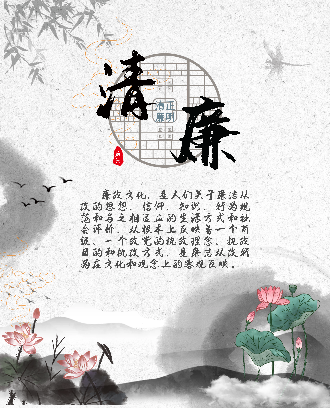 清廉
清正
廉明
廉政文化，是人们关于廉洁从
政的思想、信仰、知识、行为规
范和与之相适应的生活方式和社
会评价，从根本上反映着一个阶
级、一个政党的执政理念、执政
目的和执政方式，是廉洁从政行
为在文化和观念上的客观反映。